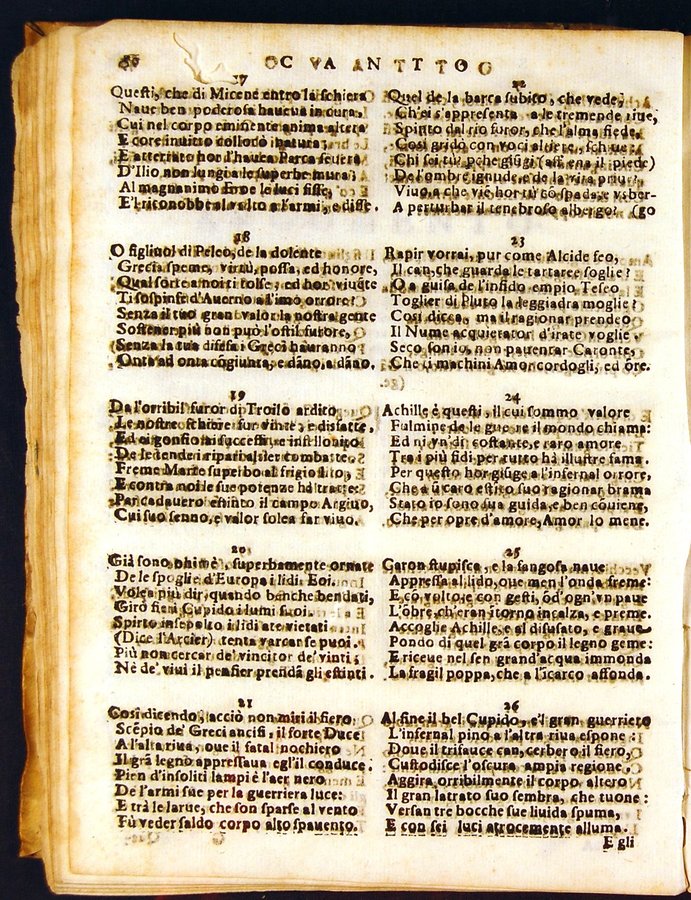 86
17
Questi, che di Micene entro la schiera
Naue ben poderosa haueua in cura,
Cui nel corpo eminente anima altera
E core inuitto collocò natura;
E atterrato hor l'hauea Parca seuera
D'Ilio non lungi a le superbe mura;
Al magnanimo Eroe le luci fisse,
E'l riconobbe al volto a l'armi, e disse.
18
O figliuol di Peleo, de la dolente
Grecia speme, virtù, possa, ed honore,
Qual sorte a noi ti tolse, ed hor viuẽte
Ti sospinse d'Auerno a l'imo orrore?
Senza il tuo gran valor la nostra gente
Sostener più non può l'ostil furore,
Senza la tua difesa i Greci hauranno
Onta ad onta cõgiunta, e dãno, a dãno.
19
Da l'orribil furor di Troilo ardito
Le nostre schiere fur vinte, e disfatte.
Ed ei gonfio
De le tende i ripari assler combatte.
Freme Marte superbo al frigio lito,
E contra noi le sue potenze hà tratte.
Par cadauero estinto il campo Argiuo,
Cui suo senno, e valor solea far viuo.
20
Già sono ohimè, superbamente ornate
De le spoglie d'Europa i lidi Eoi.
Volea più dir, quando benche bendati,
Girò fieri Cupido i lumi suoi.
Spirto insepolto i lidi ate vietati
(Dice l'Arcier) tenta varcar se puoi.
Più non cercar de' vincitor de' vinti;
Nè de' viui il pensier prendã gli estinti.
21
Così dicendo, acciò non miri il fiero
Scẽpio de' Greci ancisi, il forte Duce
A l'alta riua, oue il fatal nochiero
Il grã legno appressaua egl'il conduce.
Pien d'insoliti lampi è l'aer nero
De l'armi sue per la guerriera luce:
E trà le larue, che son sparse al vento
Fù veder saldo corpo alto spauento.
22
Quel de la barca subito, che vede,
Ch'ei s'appresenta a le tremende riue,
Spinto dal rio furor, che l'alma fiede,
Così gridò con voci altere, schiue:
Chi sei tù? pche giũgi (affrena il piede)
De l'ombre ignude, e de la vita priue,
Viuo, a che viẽ hor tù cõ spada, e vsber-
A perturbar il tenebroso albergo? (go
23
Rapir vorrai, pur come Alcide feo,
Il can, che guarda le tartaree soglie?
O a guisa de l'infido empio Teseo
Toglier di Pluto la leggiadra moglie?
Così dicea, ma il ragionar prendeo
Il Nume acquietator d'irate voglie.
Seco son io, non pauentar Caronte,
Che ti machini Amor cordogli, ed õte.
24
Achille è questi, il cui sommo valore
Fulmine de le guerre il mondo chiama:
Ed n vn dì costante, e raro amore
Tra i più fidi per tutto hà illustre fama.
Per questo hor giũge a l'infernal orrore,
Che a ũ caro estĩto suo ragionar brama
Stato io sono sua guida, e ben cõuiene,
Che per opre d'amore, Amor lo mene.
25
Caron stupisca, e la fangosa naue
Appressa al lido, oue men l'onda freme:
E cõ volto, e con gesti, õd'ogn'vn paue
L'õbre, ch'eran itorno incalza, e preme.
Accoglie Achille, e al disusato, e graue
Pondo di quel grã corpo il legno geme:
E riceue nel sen grand'acqua immonda
La fragil poppa, che a l'icarco affonda.
26
Al fine il bel Cupido, e'l gran guerriero
L'infernal pino a l'altra riua espone:
Doue il trifauce can, cerbero il fiero,
Custodisce l'oscura ampia regione.
Aggira orribilmente il corpo altero
Il gran latrato suo sembra, che tuone:
Versan tre bocche sue liuida spuma,
E con sei luci atrocemente alluma.
E gli